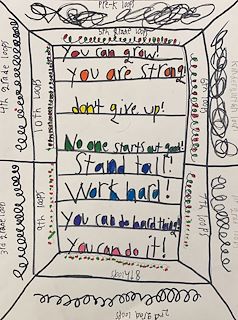 Pre-K loops
5th grade loops
You can grow!
You are strong
don't give up!
No one starts out good!
Stand tall!
Work hard!
You can do hard things!
You can do it!
8th loops
2nd grade loops
4th grade loops
10th loops
3rd grade loops
9th loops
6th loops
7th loops